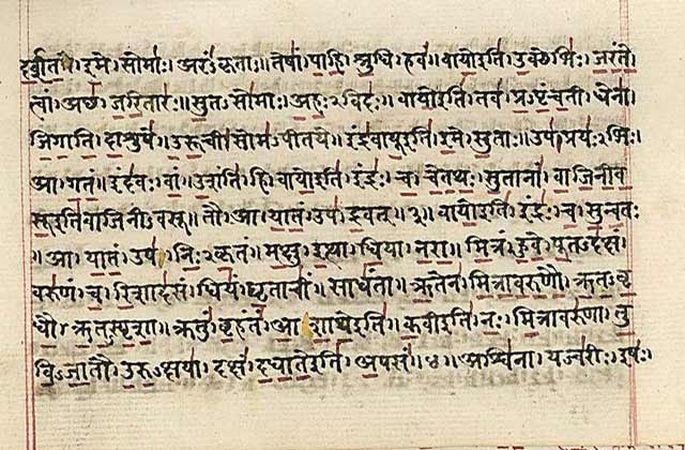 दर्शत। इमे। सोमाः। अरंऽकृताः॥ तेषां। पाहि। श्रुधि। हवं॥ वायोइति। उक्थेभिः। जरंते
त्वां। अछ। जरितारः॥ सुतऽसोमाः। अहःऽविदः॥ वायोइति। तव। प्रऽपृंचती। धेना।
जिगाति। दाशुषे॥ उरूची। सोमऽपीतये॥ इंद्रवायूइति। इमे। सुताः॥ उप। प्रयःऽभिः।
आ। गतं॥ इंदवः। वां। उशंति। हि। वायोइति। इंद्रः। च। चेतथः। सुतानां। वाजिनीव
सूइतिवाजिनीऽवसू॥ तौ। आ। यातं। उप। द्रवत्॥३॥ वायोइति। इंद्रः। च। सुन्वतः
॥ आ। यातं। उप। निःऽकृतं॥ मक्षु। इत्था। धिया। नरा॥ मित्रं। हुवे। पूतऽदक्षं।
वरुणं। च। रिशादसं॥ धियं। घृताचीं॥ साधंता॥ ऋतेन। मित्रावरुणौ। ऋतऽवृ
धौ। ऋतऽस्पृशा॥ क्रतुं। बृहंतं। आशाथेइति॥ कवीइति। नः। मित्रावरुणा। तु
विऽजातौ। उरुऽक्षया॥ दक्षं। दधातेइति। अपसं॥४॥ अश्विना। यज्वरीः। इषः।